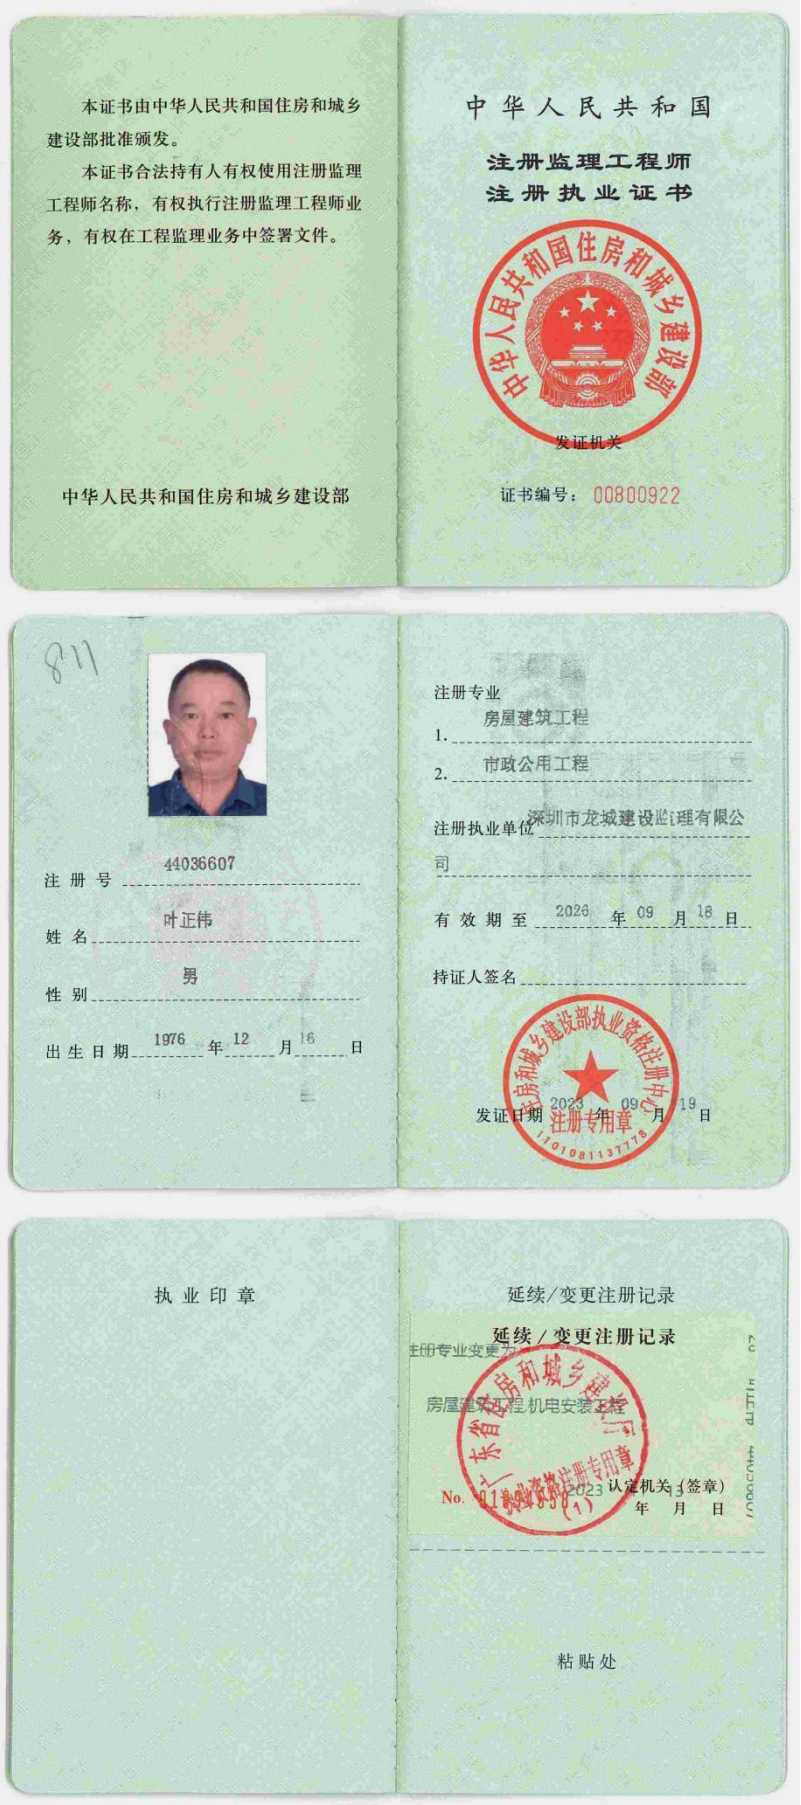 本证书由中华人民共和国住房和城乡
建设部批准颁发。
本证书合法持有人有权使用注册监理
工程师名称，有权执行注册监理工程师业
务，有权在工程监理业务中签署文件。
中华人民共和国住房和城乡建设部
中华人民共和国
注册监理工程师
注册执业证书
中华人民共和国住房和城乡建设部
发证机关
证书编号：00800922
811
注册号 44036607
姓名 叶正伟
性别 男
出生日期 1976 年 12 月 16 日
注册专业
1. 房屋建筑工程
2. 市政公用工程
注册执业单位 深圳市龙城建设监理有限公
司
有效期至 2026 年 09 月 18 日
持证人签名
住房和城乡建设部执业资格注册中心
发证日期 2023 年 09 月 19 日
注册专用章
1101081137778
执业印章
延续/变更注册记录
延续/变更注册记录
注册专业变更为:
房屋建筑工程,机电安装工程
广东省住房和城乡建设厅
执业资格注册专用章
(1)
认定机关(签章)
No.
2023 年 月 13 日
粘贴处